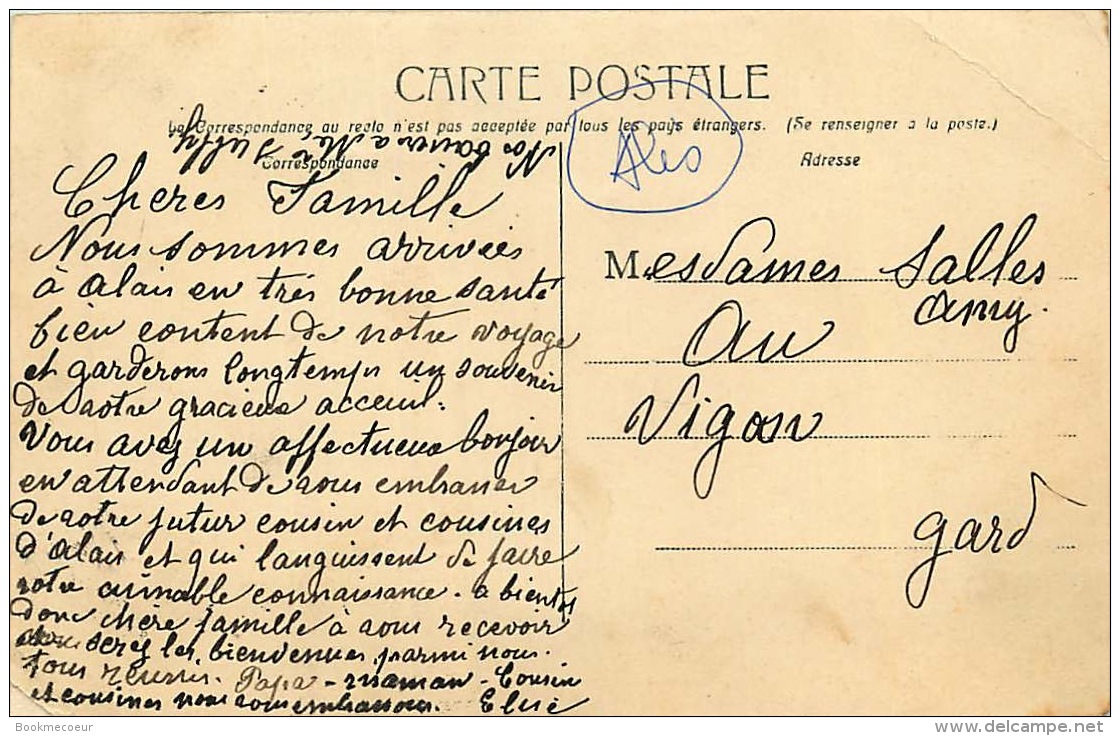 CARTE POSTALE
La Correspondance au recto n'est pas acceptée par tous les pays étrangers. (Se renseigner à la poste.)
Correspondance
Adresse
Ales
Nos baisers a
Cheres Famille
Nous sommes arrivées
à Alais en très bonne santé
bien content de notre voyage
et garderons longtemps un souvenir
de votre gracieux acceuil.
Vous avez un affectueux bonjour
en attendant de vous embrasser
de votre futur cousin et cousines
d'Alais et qui languissent de faire
votre aimable connaissance. a bientot
donc chère famille à vous recevoir
vous serez les bienvenues parmi nous.
tous réunis. Papa - maman - Cousin
et cousines nous vous embrassons. Elise
Mesdames Salles
Amy.
Au
Vigan
Gard
Bookmecoeur
www.delcampe.net